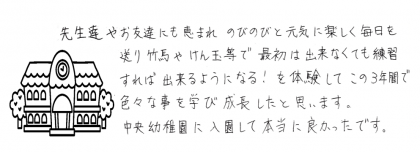 先生達やお友達にも恵まれ のびのびと元気に楽しく毎日を
送り竹馬やけん玉等で最初は出来なくても練習
すれば出来るようになる！を体験してこの3年間で
色々な事を学び成長したと思います。
中央幼稚園に入園して本当に良かったです。